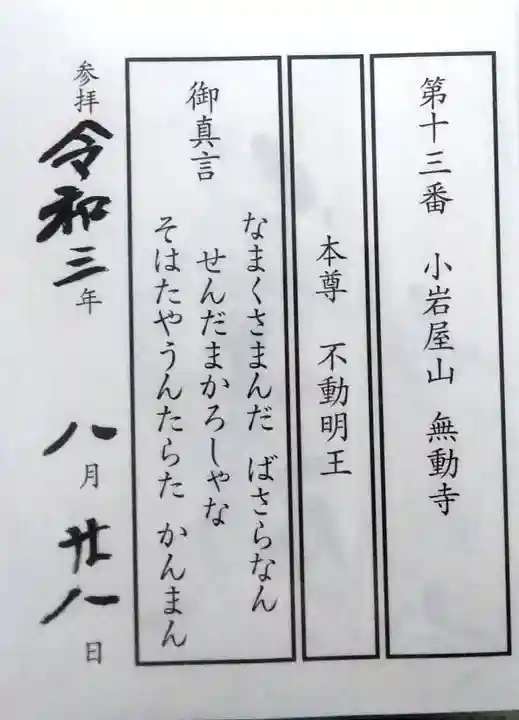 第十三番　小岩屋山　無動寺
本尊　不動明王
御真言
なまくさまんだ　ばさらなん
せんだまかろしゃな
そはたやうんたらた　かんまん
参拝　令和三年　八月　廿八日